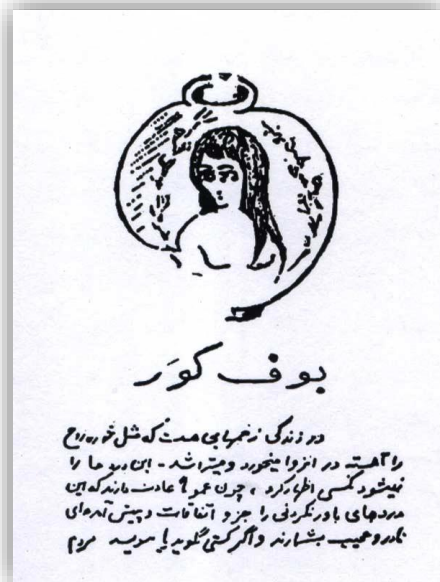 بوف کور
در زندگی زخمهایی هست که مثل خوره روح
را آهسته در انزوا میخورد و میتراشد - این درد ها را
نمیشود بکسی اظهار کرد ، چون عموماً عادت دارند که این
دردهای باورنکردنی را جزو اتفاقات و پیش آمدهای
نادر و عجیب بشمارند و اگر کسی بگوید یا بنویسد مردم